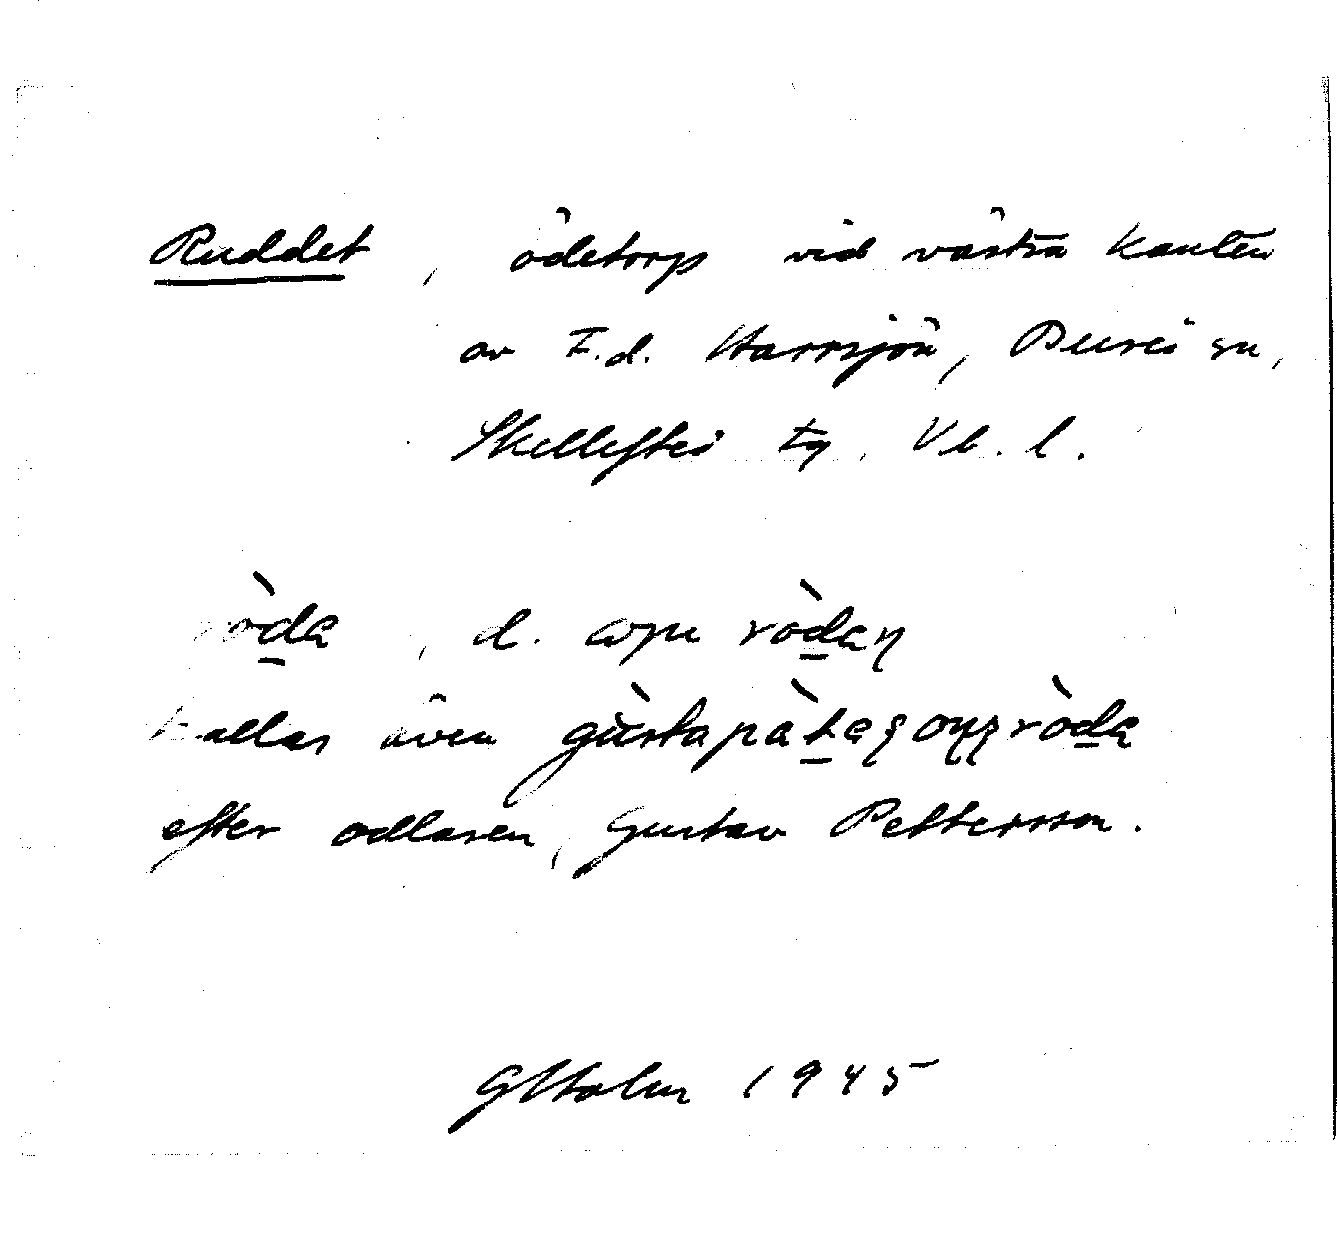 Ruddet, ödetorp vid västra kanten
av f.d. Harrsjön, Bureå sn,
Skellefteå tg. Vb. l.
ròda, d. opu ròdaŋ
kallas även gùstapàtaʂonʂròda
efter odlaren, Gustav Pettersson.
GHolm 1945